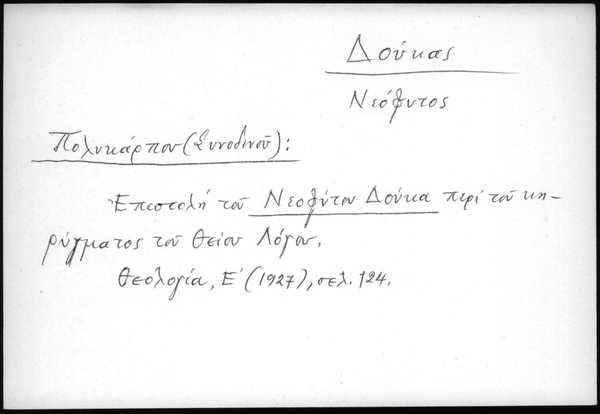 Δούκας
Νεόφυτος
Πολυκάρπου (Συνοδινοῦ):
Ἐπιστολή τοῦ Νεοφύτου Δούκα περί τοῦ κη-
ρύγματος τοῦ Θείου Λόγου,
Θεολογία, Ε' (1927), σελ. 124.